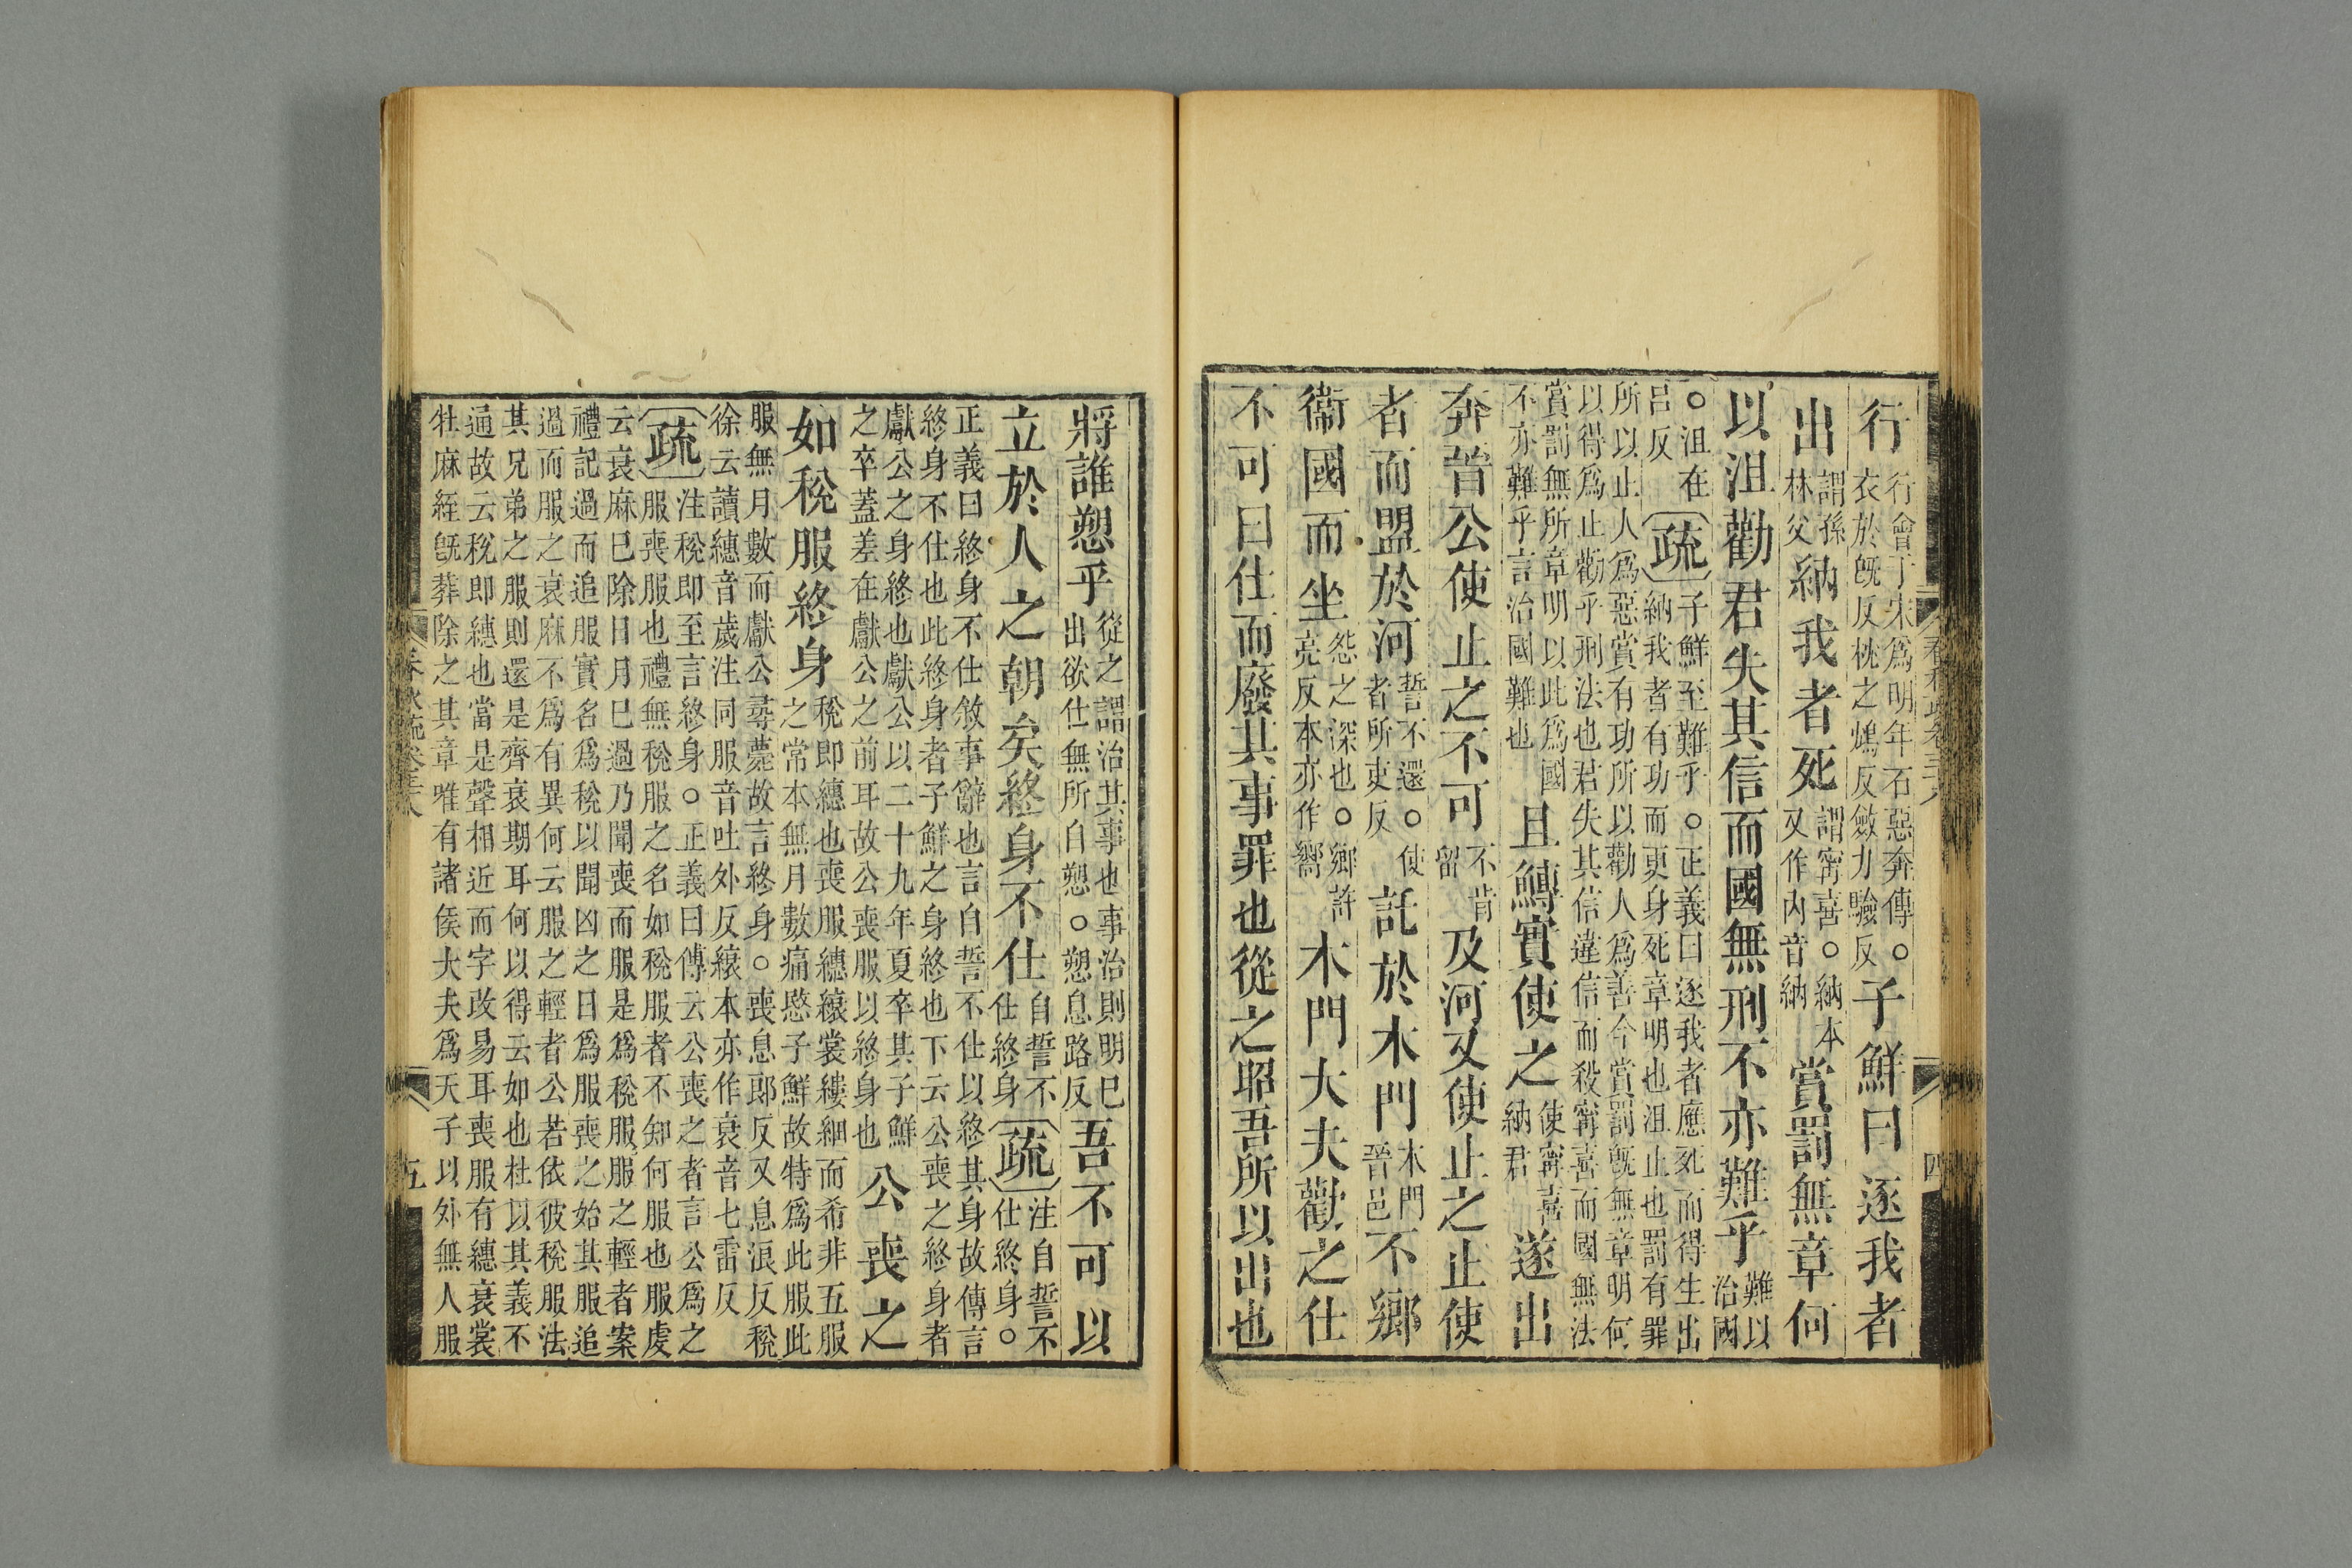 行行會于宋爲明年石惡奔傳○衣於旣反枕之鴆反斂力驗反子鮮曰逐我者
出謂孫林父納我者死謂甯喜○納本又作內音納賞罰無章何
以沮勸君失其信而國無刑不亦難乎難以治國
○沮在呂反疏子鮮至難乎○正義曰逐我者應死而得生出納我者有功而更身死章明也沮止也罰有罪
所以止人爲惡賞有功所以勸人爲善今賞罰旣無章明何以得爲止勸乎刑法也君失其信違信而殺甯喜而國無法
賞罰無所章明以此爲國不亦難乎言治國難也且鱄實使之使甯喜納君遂出
奔晉公使止之不可不肯留及河又使止之止使
者而盟於河誓不還○使者所吏反託於木門木門晉邑不鄉
衞國而坐怨之深也○鄉許亮反本亦作嚮木門大夫勸之仕
不可曰仕而廢其事罪也從之昭吾所以出也
四
將誰愬乎從之謂治其事也事治則明巳出欲仕無所自愬○愬息路反吾不可以
立於人之朝矣終身不仕自誓不仕終身疏注自誓不仕終身○
正義曰終身不仕敘事辭也言自誓不仕以終其身故傳言終身不仕也此終身者子鮮之身終也下云公喪之終身者
獻公之身終也獻公以二十九年夏卒其子鮮之卒蓋差在獻公之前耳故公喪服以終身也公喪之
如稅服終身稅即繐也喪服繐縗裳縷細而希非五服之常本無月數痛愍子鮮故特爲此服此
服無月數而獻公尋薨故言終身○喪息郎反又息浪反稅徐云讀繐音歲注同服音吐外反縗本亦作衰音七雷反
疏注稅即至言終身○正義曰傳云公喪之者言公爲之服喪服也禮無稅服之名如稅服者不知何服也服虔
云衰麻巳除日月巳過乃聞喪而服是爲稅服服之輕者案禮記過而追服實名爲稅以聞凶之日爲服喪之始其服追
過而服之衰麻不爲有異何云服之輕者公若依彼稅服法其兄弟之服則還是齊衰期耳何以得云如也杜以其義不
通故云稅即繐也當是聲相近而字改易耳喪服有繐衰裳牡麻絰旣葬除之其章唯有諸侯大夫爲天子以外無人服
五